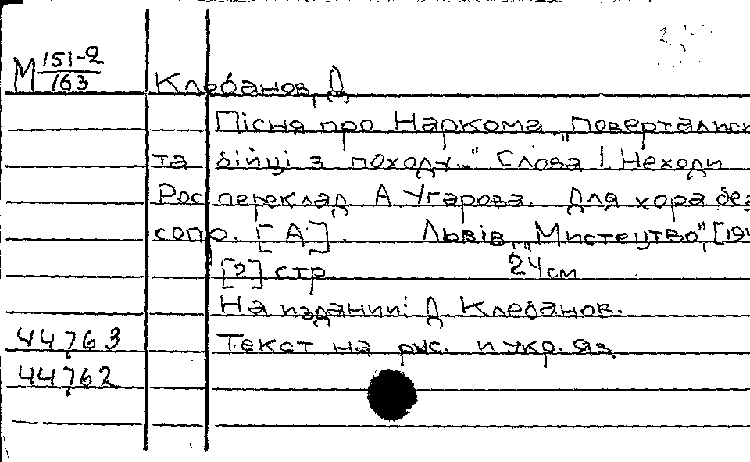 М 151-2/163
Клебанов, Д
Пісня про Наркома „Повертались
та бійці з походу..." Слова І. Неходи
Рос переклад А Угарова. Для хора без
сопр. [А]. Львів, „Мистецтво", [194
[2] стр 24 см
На издании: Д Клебанов.
44763 Текст на рус. и укр. яз.
44762